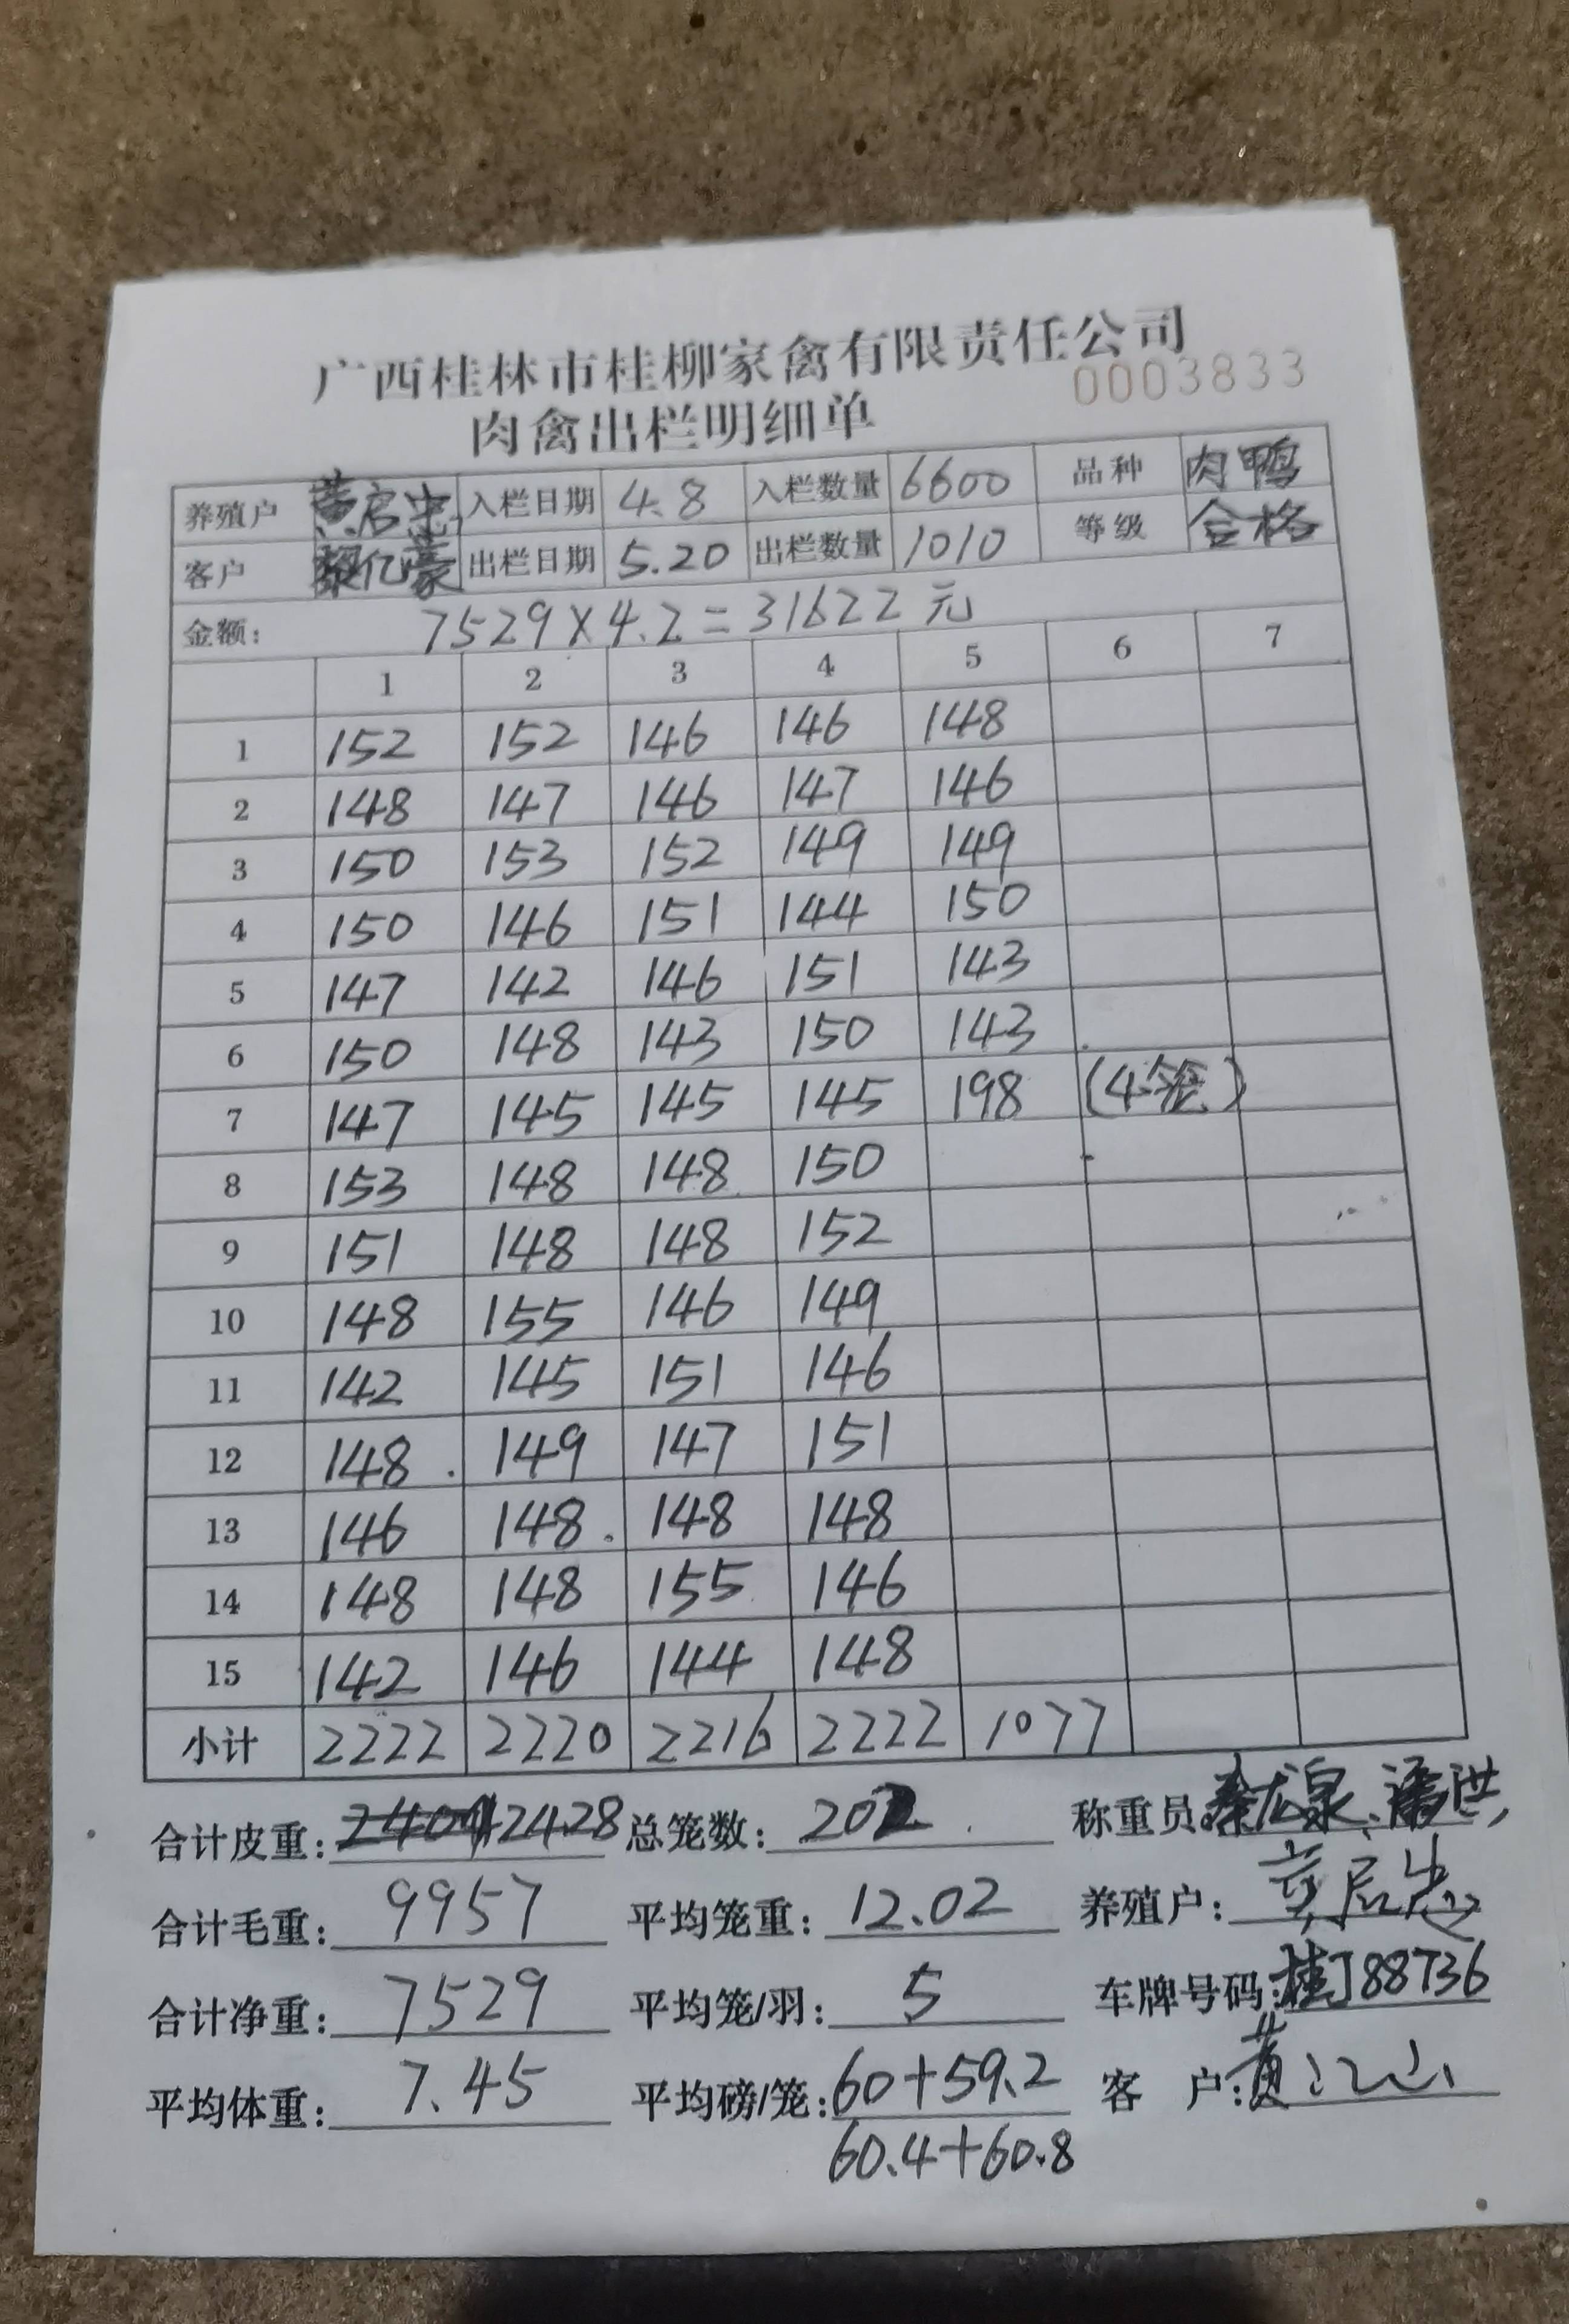 广西桂林市桂柳家禽有限责任公司
0003833
肉禽出栏明细单
养殖户 黄启忠 入栏日期 4.8 入栏数量 6600 品种 肉鸭
客户 黎亿豪 出栏日期 5.20 出栏数量 1010 等级 合格
金额: 7529×4.2=31622元
1 2 3 4 5 6 7
1 152 152 146 146 148
2 148 147 146 147 146
3 150 153 152 149 149
4 150 146 151 144 150
5 147 142 146 151 143
6 150 148 143 150 143
7 147 145 145 145 198 (4笼)
8 153 148 148 150
9 151 148 148 152
10 148 155 146 149
11 142 145 151 146
12 148 149 147 151
13 146 148 148 148
14 148 148 155 146
15 142 146 144 148
小计 2222 2220 2216 2222 1077
合计皮重: 2428 总笼数: 202 称重员: 秦龙泉、潘洪
合计毛重: 9957 平均笼重: 12.02 养殖户: 黄启忠
合计净重: 7529 平均笼/羽: 5 车牌号码: 桂J88736
平均体重: 7.45 平均磅/笼: 60+59.2 客户: 黄
60.4+60.8